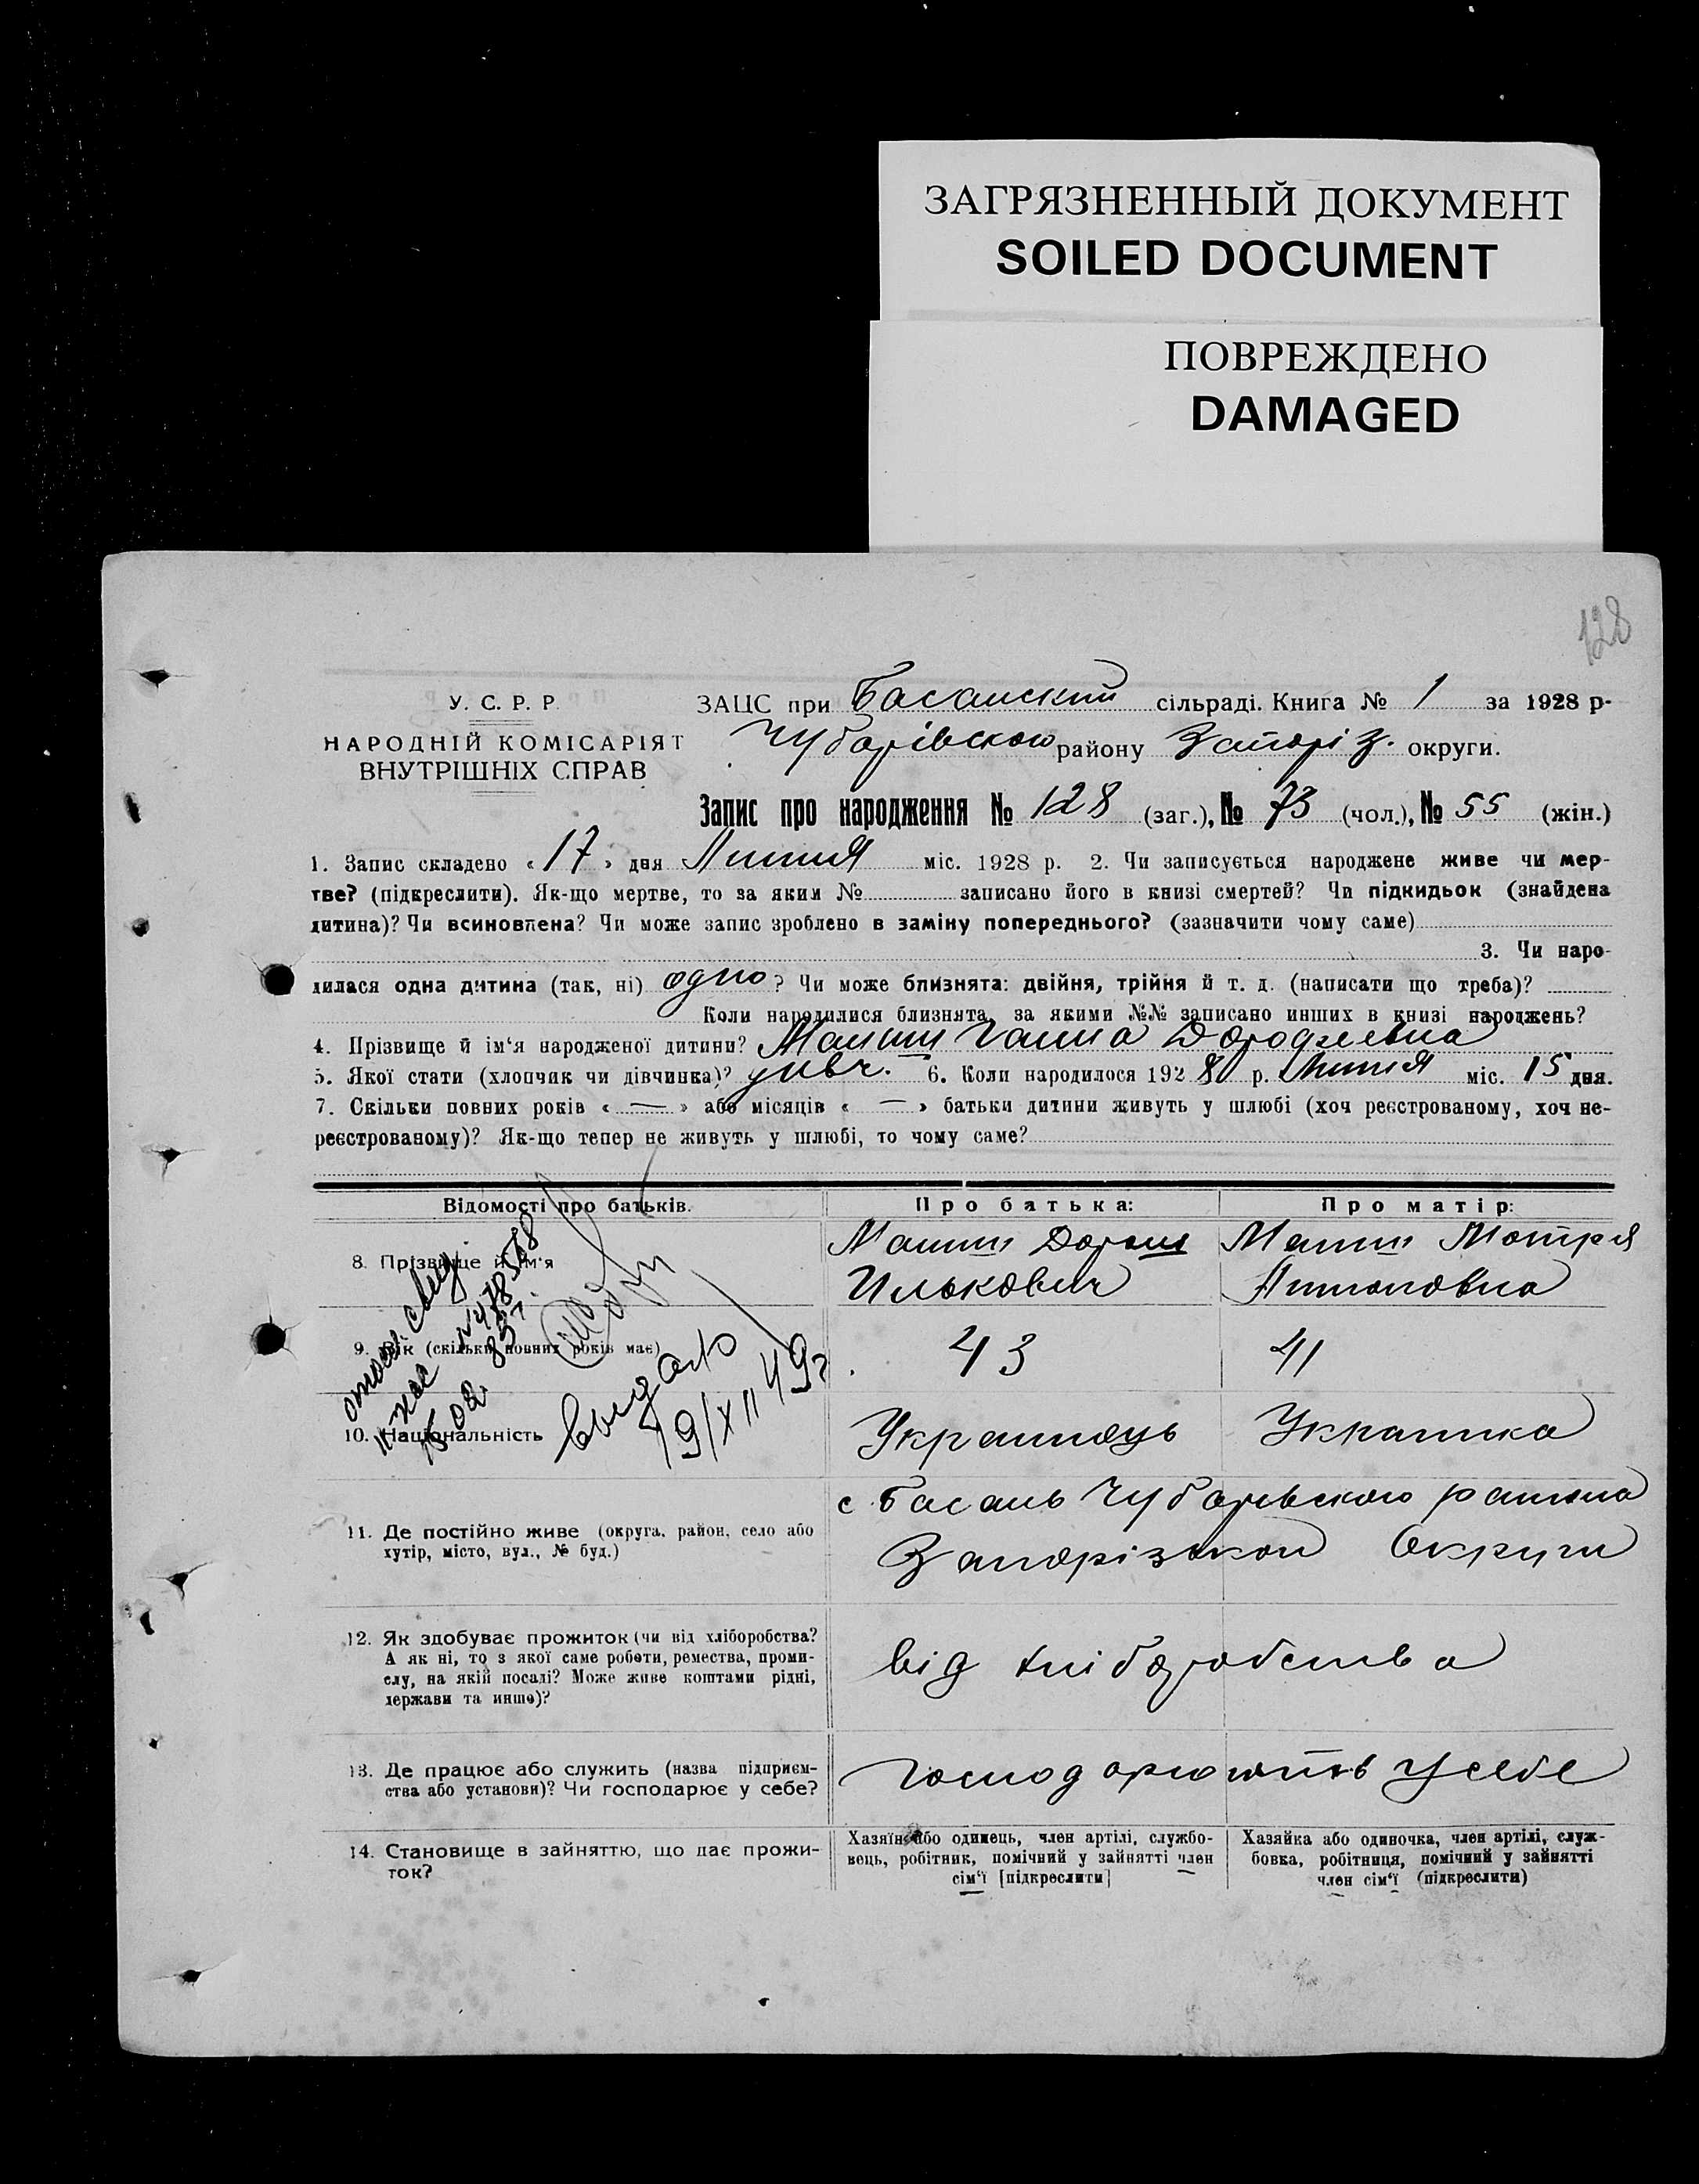 ЗАГРЯЗНЕННЫЙ ДОКУМЕНТ
SOILED DOCUMENT
ПОВРЕЖДЕНО
DAMAGED
128
У. С. Р. Р.
НАРОДНІЙ КОМІСАРІЯТ
ВНУТРІШНІХ СПРАВ
ЗАЦС при Басанский сільраді. Книга № 1 за 1928 р.
Чубарівского району Запоріз. округи.
Запис про народження № 128 (заг.), № 73 (чол.), № 55 (жін.)
1. Запис складено « 17 » дня Липня міс. 1928 р. 2. Чи записується народжене живе чи мер-
тве? (підкреслити). Як-що мертве, то за яким № записано його в книзі смертей? Чи підкидьок (знайдена
дитина)? Чи всиновлена? Чи може запис зроблено в заміну попереднього? (зазначити чому саме)
3. Чи наро-
дилася одна дитина (так, ні) одно? Чи може близнята: двійня, трійня й т. д. (написати що треба)?
Коли народилися близнята, за якими №№ записано инших в книзі народжень?
4. Прізвище й ім'я народженої дитини? Ганна
5. Якої стати (хлопчик чи дівчинка)? дивч. 6. Коли народилося 1928 р. Липня міс. 15 дня.
7. Скільки повних років « — » або місяців « — » батьки дитини живуть у шлюбі (хоч реєстрованому, хоч не-
реєстрованому)? Як-що тепер не живуть у шлюбі, то чому саме?
Відомості про батьків. Про батька: Про матір:
8. Прізвище й ім'я Мотря
Илькович
9. Вік (скільки повних років має) 43 41
10. Національність Украинець Украинка
выдано
19/XII 49г
11. Де постійно живе (округа, район, село або
хутір, місто, вул., № буд.)
с. Басань Чубарівского района
Запорізькои Округи
12. Як здобуває прожиток (чи від хліборобства?
А як ні, то з якої саме роботи, ремества, проми-
слу, на якій посаді? Може живе коштами рідні,
держави та инше)?
від хліборобства
13. Де працює або служить (назва підприєм-
ства або установи)? Чи господарює у себе?
господарюють у себе
14. Становище в зайняттю, що дає прожи-
ток?
Хазяїн або одинець, член артілі, службо-
вець, робітник, помічний у зайнятті член
сім'ї [підкреслити]
Хазяйка або одиночка, член артілі, служ-
бовка, робітниця, помічний у зайнятті
член сім'ї (підкреслити)